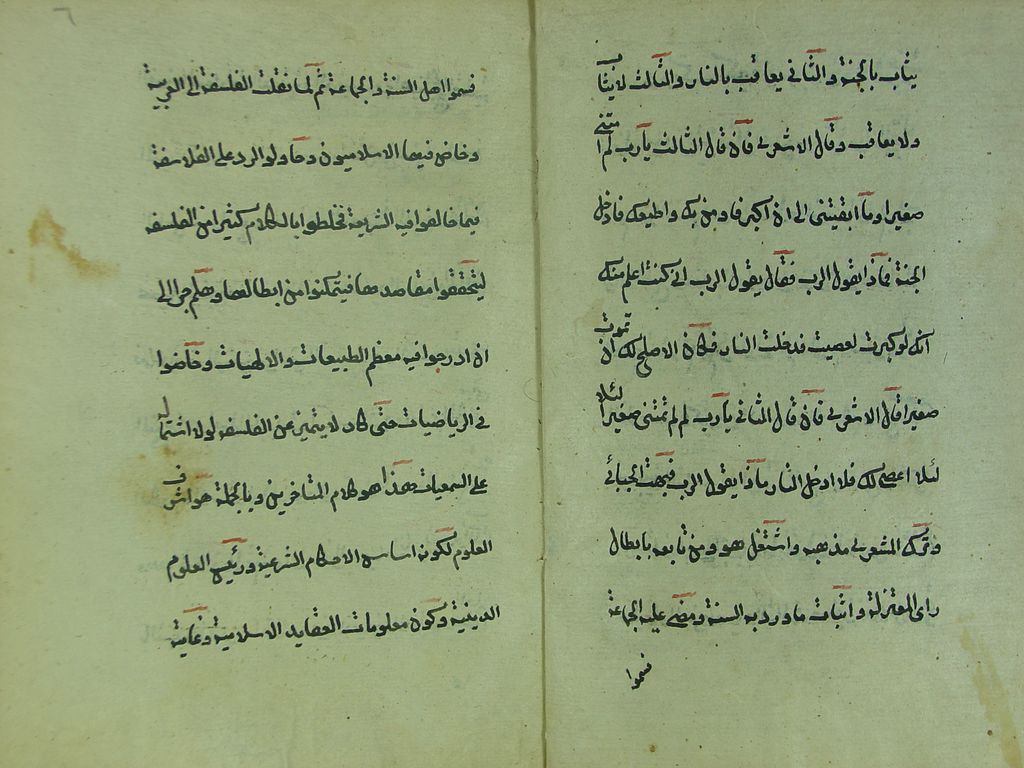 يثاب بالجنة والثاني يعاقب بالنار والثالث لا يثاب
ولا يعاقب وقال الاشعرى فان قال الثالث يارب لم امتنى
صغيرا وما ابقيتنى الى ان اكبر فاومن بك واطيعك فادخل
الجنة فماذا يقول الرب فقال يقول الرب انى كنت اعلم منك
انك لو كبرت لعصيت فدخلت النار فكان الاصلح لك ان تموت
صغيرا قال الاشعرى فان قال الثانى يارب لم لم تمتنى صغيرا لئلا
لئلا اعصى لك فلا ادخل النار ماذا يقول الرب فبهت الجبائي
وترك الاشعرى مذهبه واشتغل هو ومن تابعه بابطال
راى المعتزلة واثبات ما ورد به السنة ومضى عليه الجماعة
فسموا
٦
فسموا اهل السنة والجماعة ثم لما نقلت الفلسفة الى العربية
وخاض فيها الاسلاميون وحاولوا الرد على الفلاسفة
فيما خالفوا فيه الشريعة فخلطوا بالكلام كثيرا من الفلسفه
ليتحققوا مقاصدها فيتمكنوا من ابطالها وهلم جرا الى
ان ادرجوا فيه معظم الطبيعات والالهيات وخاضوا
فى الرياضيات حتى كاد لا يتميز عن الفلسفه لولا اشتماله
على السمعيات هذا هو كلام المتاخرين وبالجملة هو اشرف
العلوم لكونه اساس الاحكام الشرعية ورئيس العلوم
الدينية وكون معلومات العقايد الاسلامية وغايته